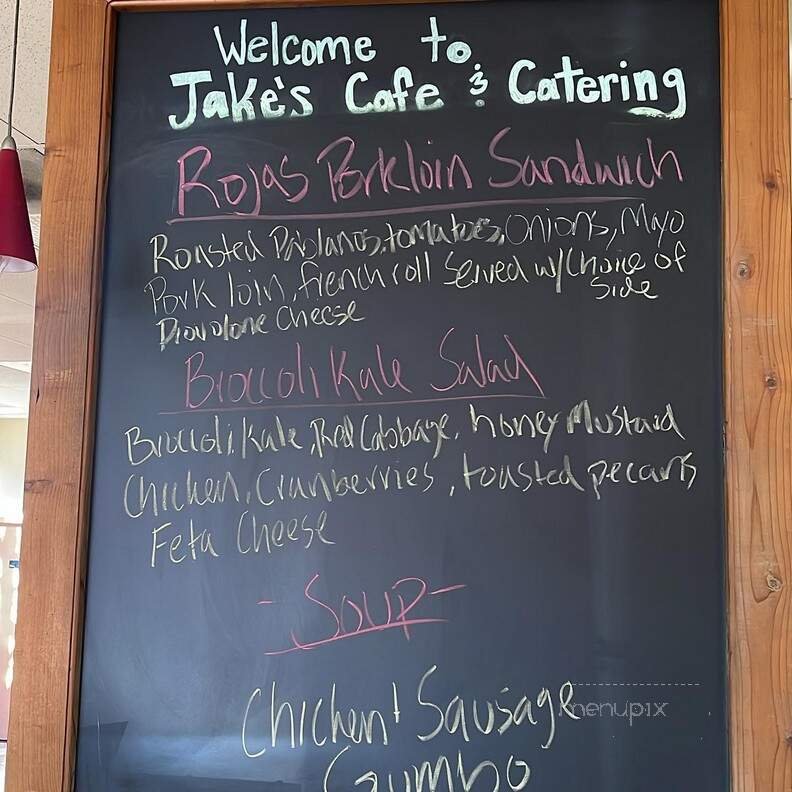 Welcome to
Jake's Cafe & Catering
Rojas Porkloin Sandwich
Roasted Pablanos, tomatoes, onions, Mayo
Pork loin, french roll Served w/ Choice of
Side
Provolone Cheese
Broccoli Kale Salad
Broccoli, Kale, Red Cabbage, honey Mustard
Chicken, Cranberries, toasted pecans
Feta Cheese
-Soup-
Chicken + Sausage
menupix
Gumbo